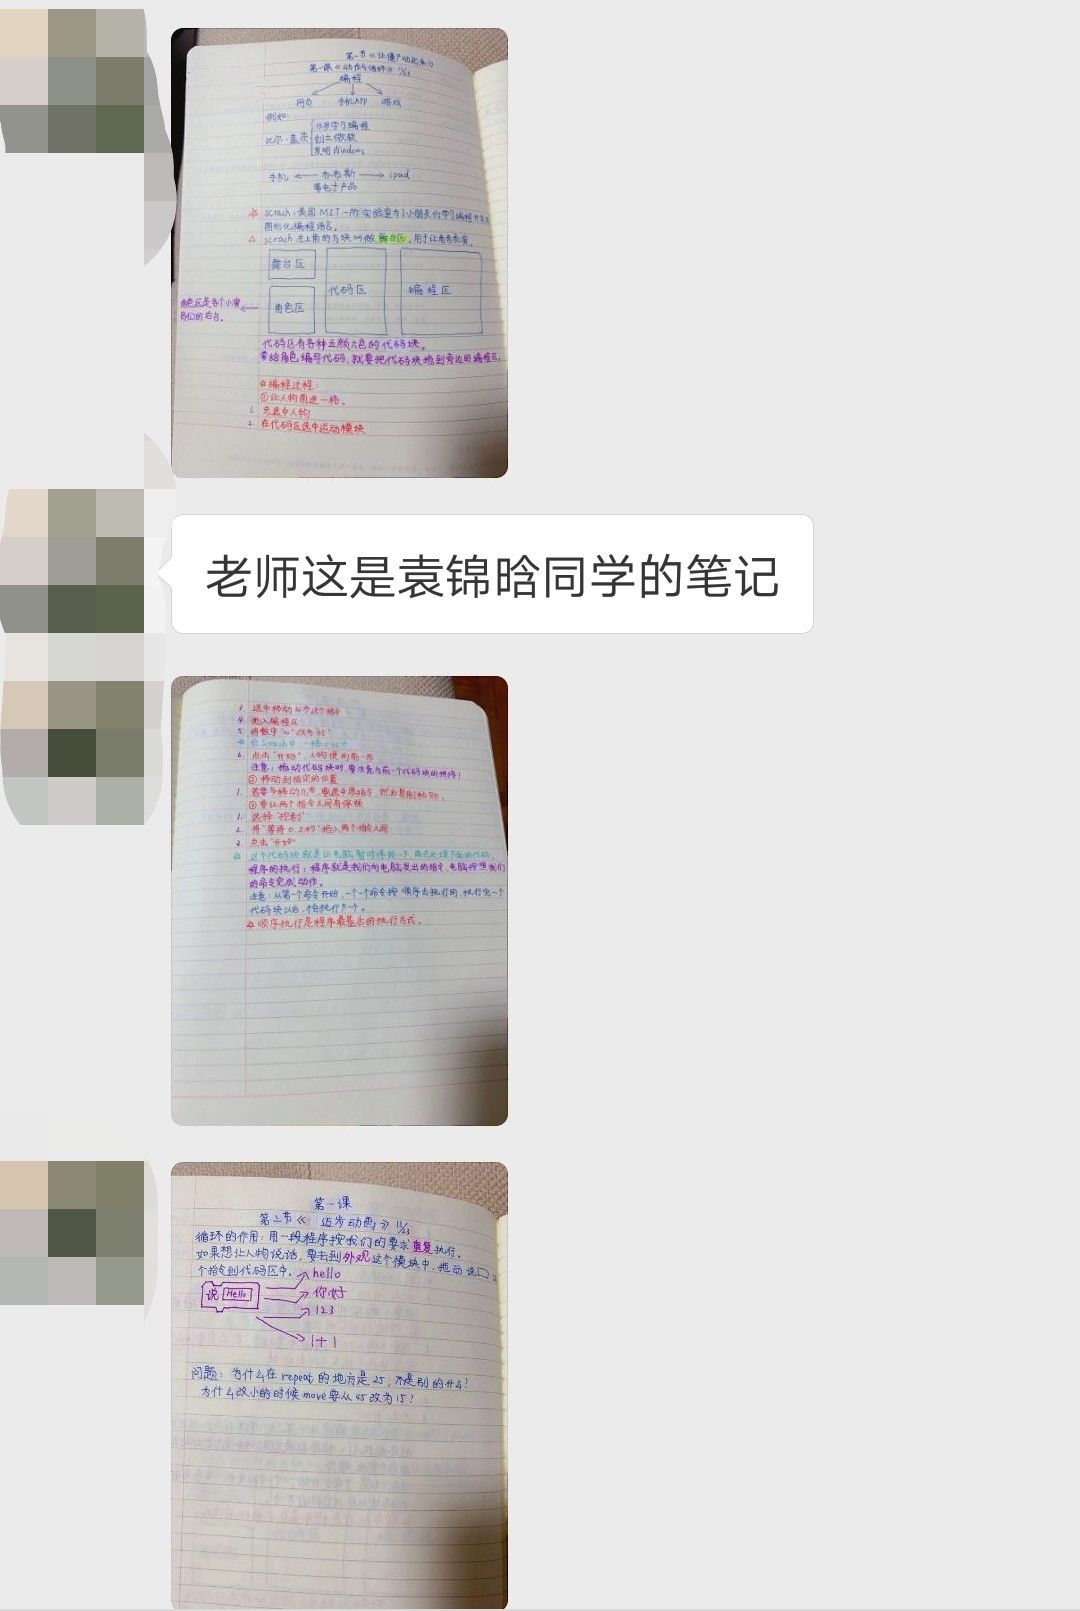 第一节《让僵尸动起来》
第一课《动作与循环》 11/23
编程
网页 手机APP 游戏
例如:
比尔·盖茨
13岁学习编程
创立微软
发明Windows
手机 乔布斯 ipad
等电子产品
☆ scrash:美国MIT一所实验室为了小朋友们学习编程开发的
图形化编程语言。
△ scrash左上角的方块叫做舞台区,用于让角色表演。
舞台区
代码区
编程区
角色区
角色区是各个小演员们的后台。
代码区有各种五颜六色的代码块。
要给角色编写代码,就要把代码块拖到旁边的编程区。
☆编程过程:
①让人物前进一格。
1. 先选中人物
2. 在代码区选中运动模块
老师这是袁锦晗同学的笔记
3. 选中移动10步这个指令
4. 拖入编程区
5. 将数字"10"改为"45"
☆ 在Scrash中,一格=45步
6. 点击"开始",人物便向前一步
注意:拖动代码块时,要注意与前一个代码块的拼接!
②移动到指定的位置
1. 若要多移动几步,要选中原指令,然后复制粘贴。
③要让两个指令之间有停顿
1. 选择"控制"
2. 将"等待0.2秒"拖入两个指令之间
3. 点击"开始"
☆ 这个代码块就是让电脑暂时停顿一下,再去处理下面的代码
程序的执行:程序就是我们向电脑发出的指令,电脑按照我们
的命令完成动作。
注意:从第一个命令开始,一个一个命令按顺序去执行的,执行完一个
代码块以后,才会执行下一个。
☆ 顺序执行是程序最基本的执行方式。
第一课
第二节《迈步动画》 11/23
循环的作用:用一段程序按我们的要求重复执行。
如果想让人物说话,要去到外观这个模块中,拖动说□这
个指令到代码区中。
说 Hello
hello
你好
123
1+1
问题:为什么在repeat的地方是25,不是别的什么?
为什么改小的时候move要从45改为15?